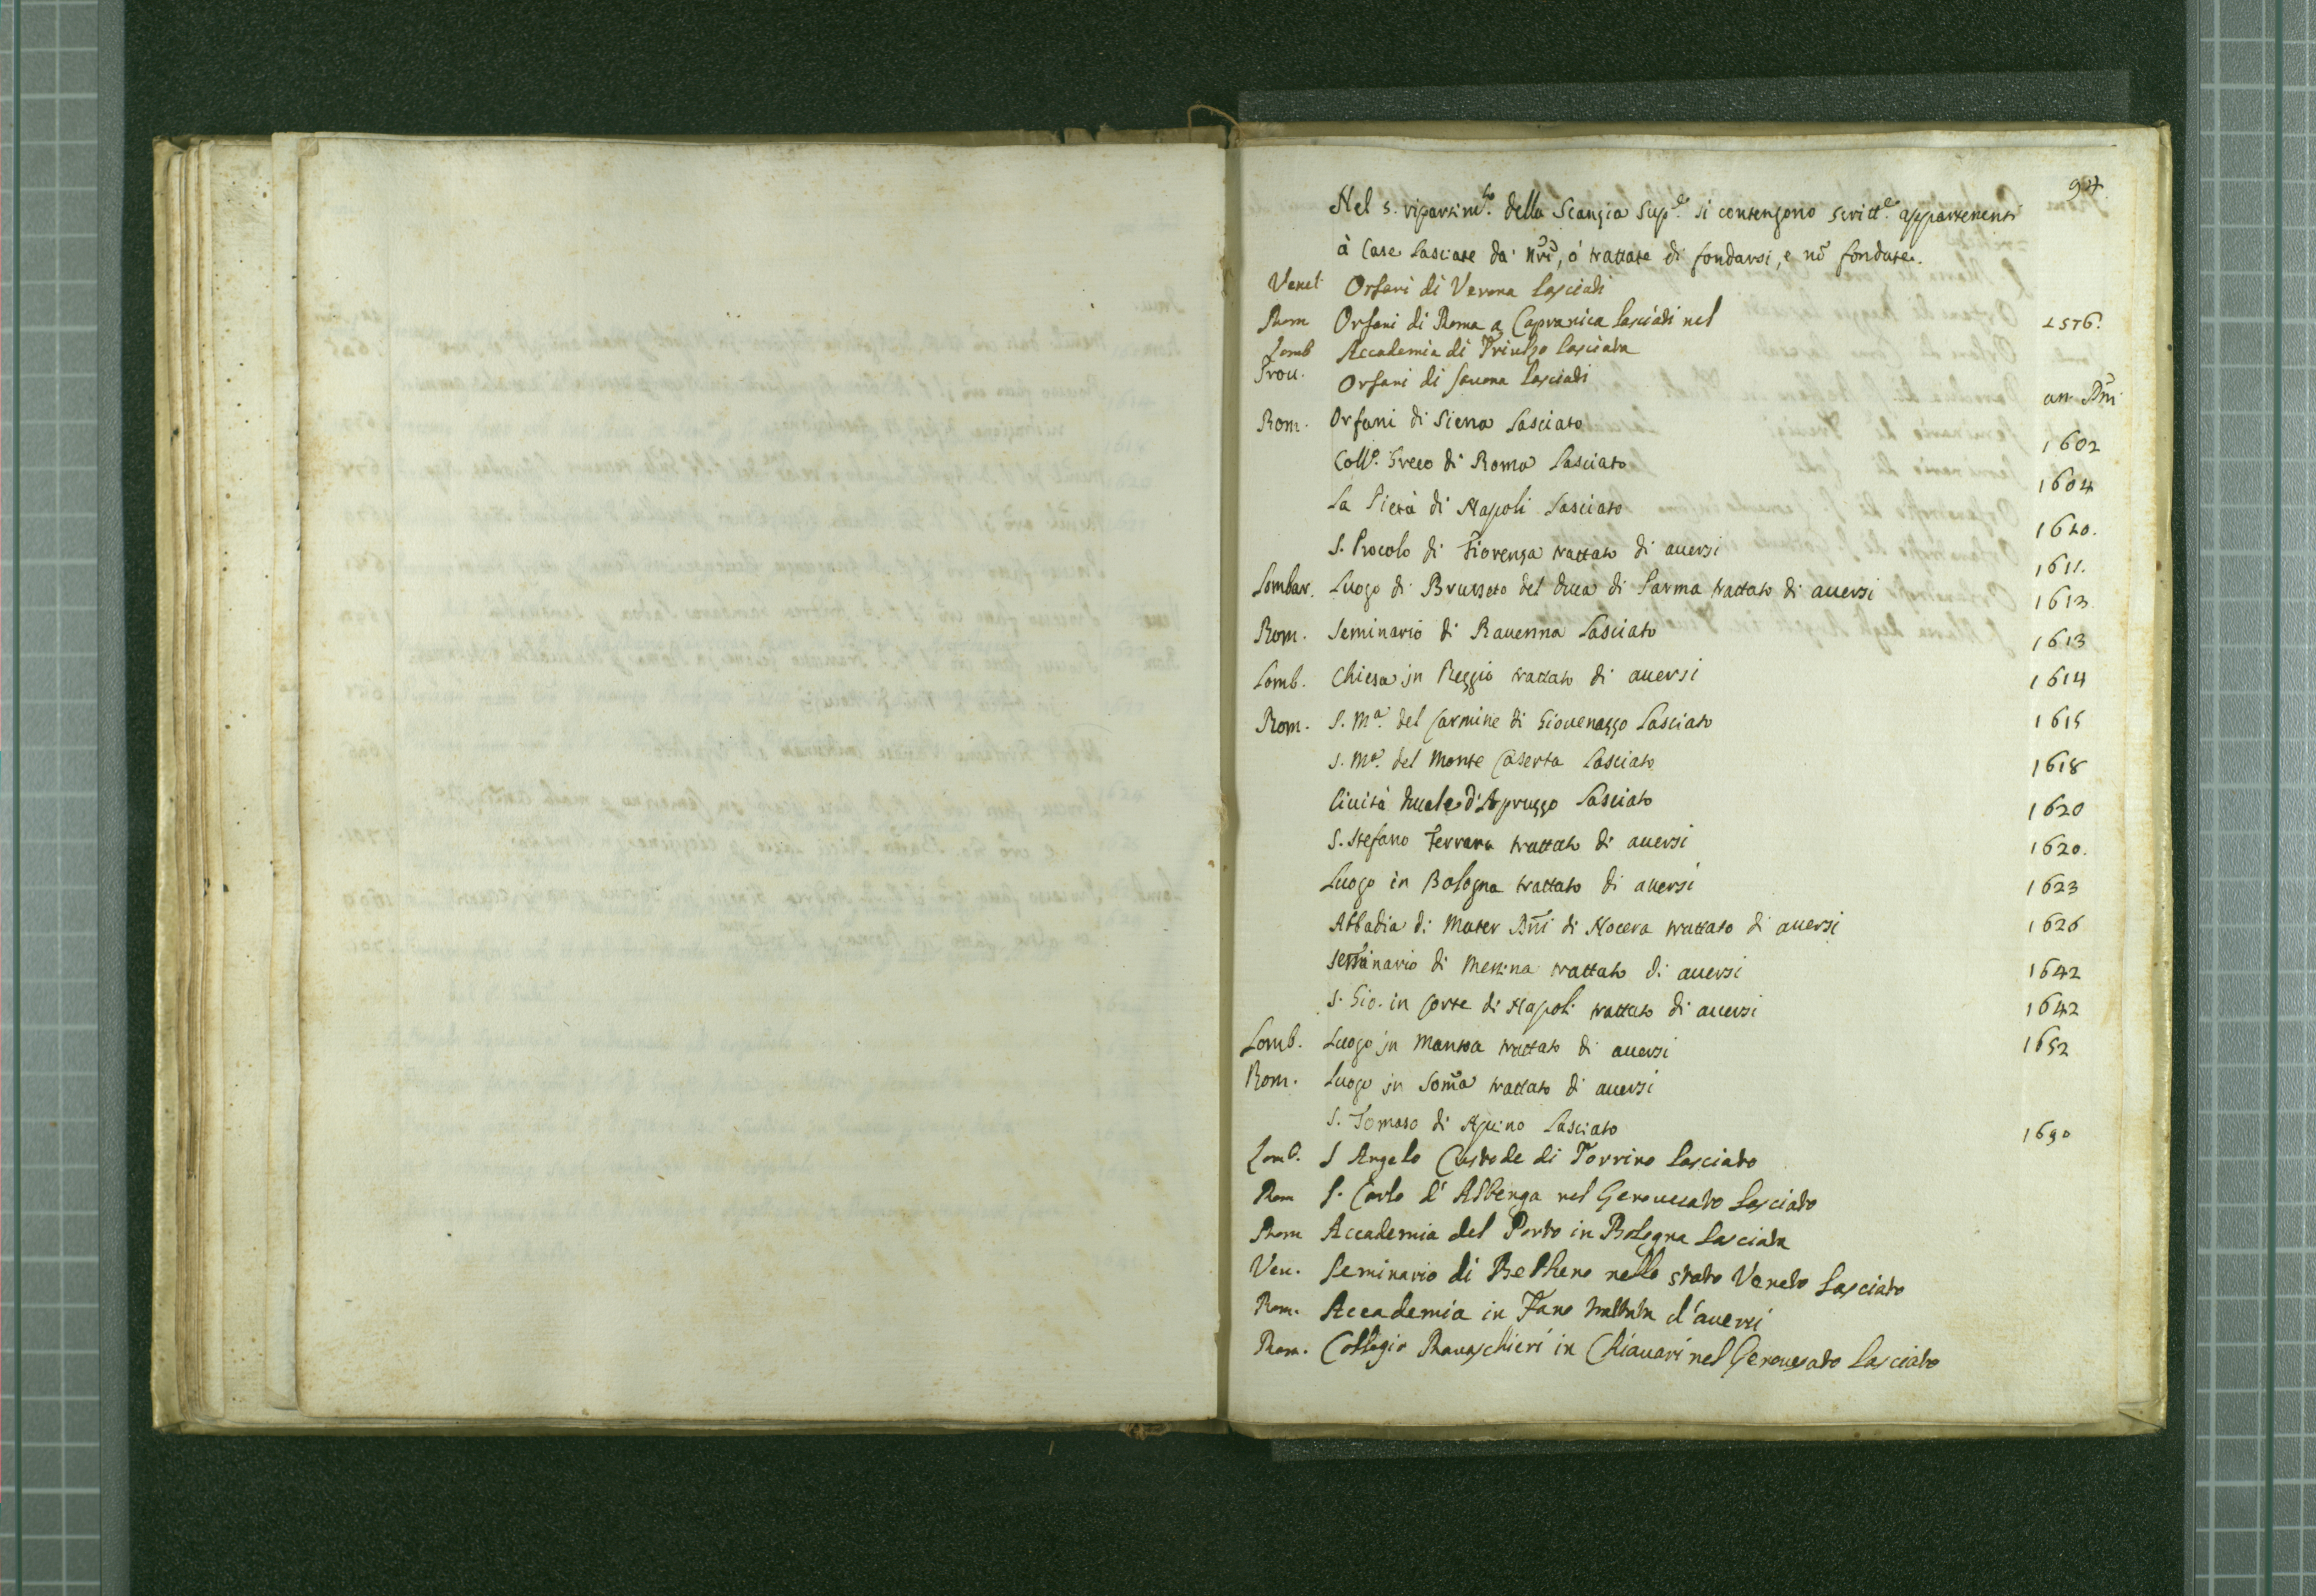 94.
Nel 5. ripartim.to della Scanzia Sup.e si contengono scritt.e appartenenti
à Case lasciate da' nrĩ, ó trattate di fondarsi, e nõ fondate.
Venet Orfani di Verona lasciati
Rom Orfani di Roma a Capranica lasciati nel 1576.
Lomb Accademia di Triulzo lasciata
Prou. Orfani di Sauona lasciati
an. Dñi
Rom. Orfani di Siena lasciato 1602
Coll.o Greco di Roma lasciato 1604
La Pietà di Napoli lasciato 1610.
S. Procolo di Fiorenza trattato di auersi 1611.
Lombar. Luogo di Brusseto del Duca di Parma trattato di auersi 1613
Rom. Seminario di Rauenna lasciato 1613
Lomb. Chiesa jn Reggio trattato di auersi 1614
Rom. S. M.a del Carmine di Giouenazzo lasciato 1615
S. M.a del Monte Caserta lasciato 1618
Ciuità Duale d'Apruzzo lasciato 1620
S. Stefano Ferrara trattato di auersi 1620.
Luogo in Bologna trattato di auersi 1623
Abbadia di Mater Dñi di Nocera trattato di auersi 1626
Seminario di Messina trattato di auersi 1642
S. Gio. in Corte di Napoli trattato di auersi 1642
Lomb. Luogo jn Mantoa trattato di auersi 1652
Rom. Luogo jn Som̃a trattato di auersi
S. Tomaso di Aquino lasciato 1690
Lomb. S Angelo Custode di Torrino lasciato
Rom S. Carlo d'Albenga nel Genouesato lasciato
Rom Accademia del Porto in Bologna lasciata
Ven. Seminario di Belluno nello stato Veneto lasciato
Rom. Accademia in Fano trattata d'auersi
Rom. Collegio Rauaschieri in Chiauari nel Genouesato lasciato